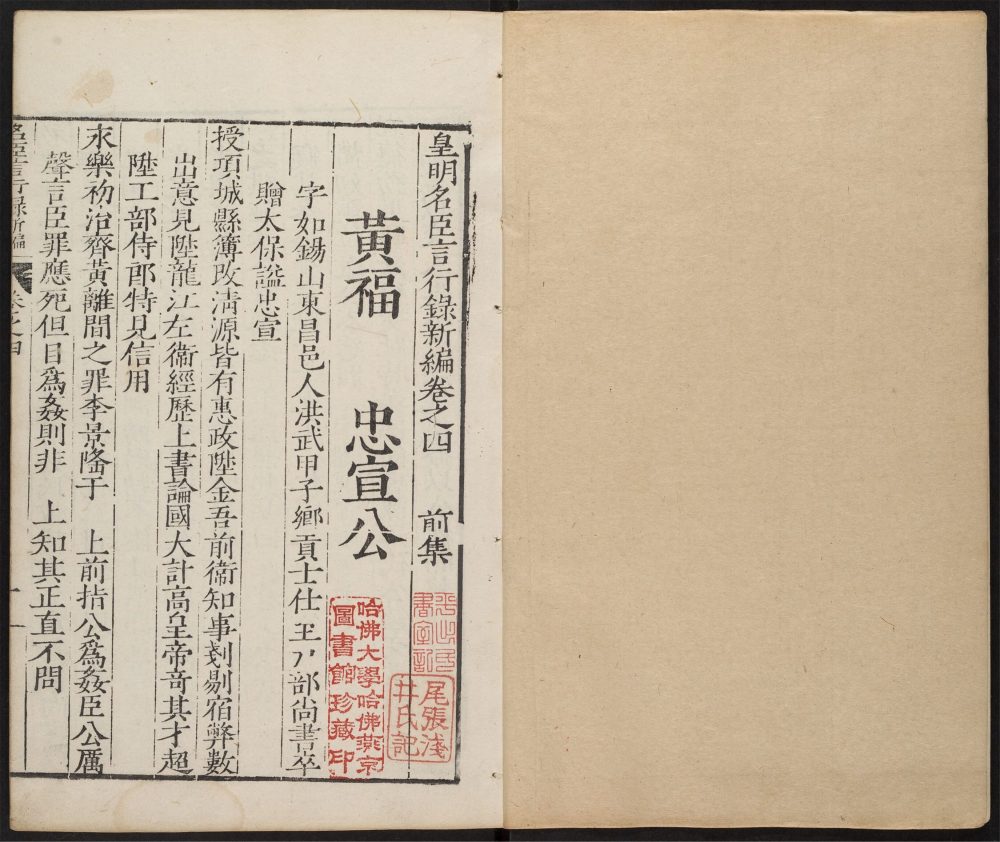 皇明名臣言行錄新編卷之四　前集
黃福　忠宣公
字如錫山東昌邑人洪武甲子鄉貢士仕至戶部尚書卒
贈太保謚忠宣
授項城縣簿改清源皆有惠政陞金吾前衞知事剗剔宿弊數
出意見陞龍江左衞經歷上書論國大計高皇帝奇其才超
陞工部侍郎特見信用
永樂初治齊黃離間之罪李景隆于　上前指公爲姦臣公厲
聲言臣罪應死但目爲姦則非　上知其正直不問
名臣言行錄新編　卷之四　一
哈佛大學哈佛燕京
圖書館珍藏印
尾張淺
井氏記